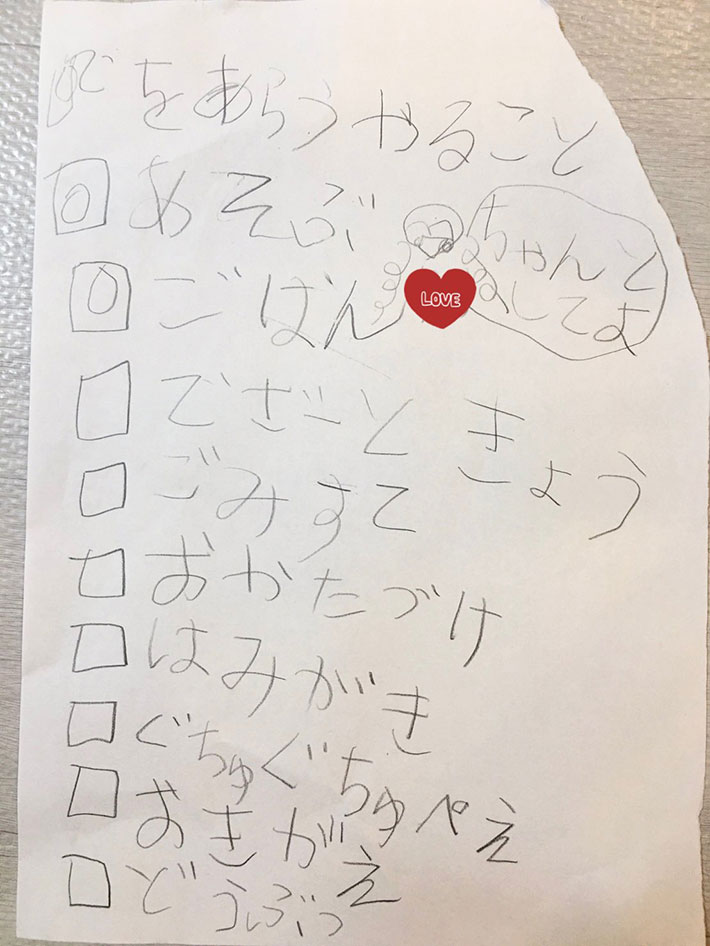 てをあらう やること
あそぶ
ちゃんと
してよ
LOVE
ごはん
でざーと きょう
ごみすて
おかたづけ
はみがき
ぐちゅぐちゅぺえ
おきがえ
どうぶつ